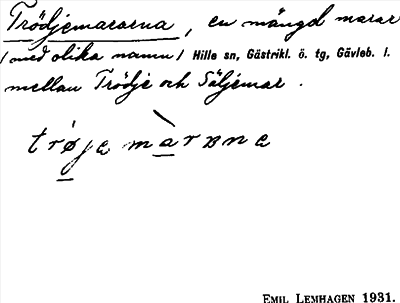 Trödjemararna, en mängd marar
(med olika namn) Hille sn, Gästrikl. ö. tg, Gävleb. l.
mellan Trödje och Säljemar.
trøje màrʌne
EMIL LEMHAGEN 1931.